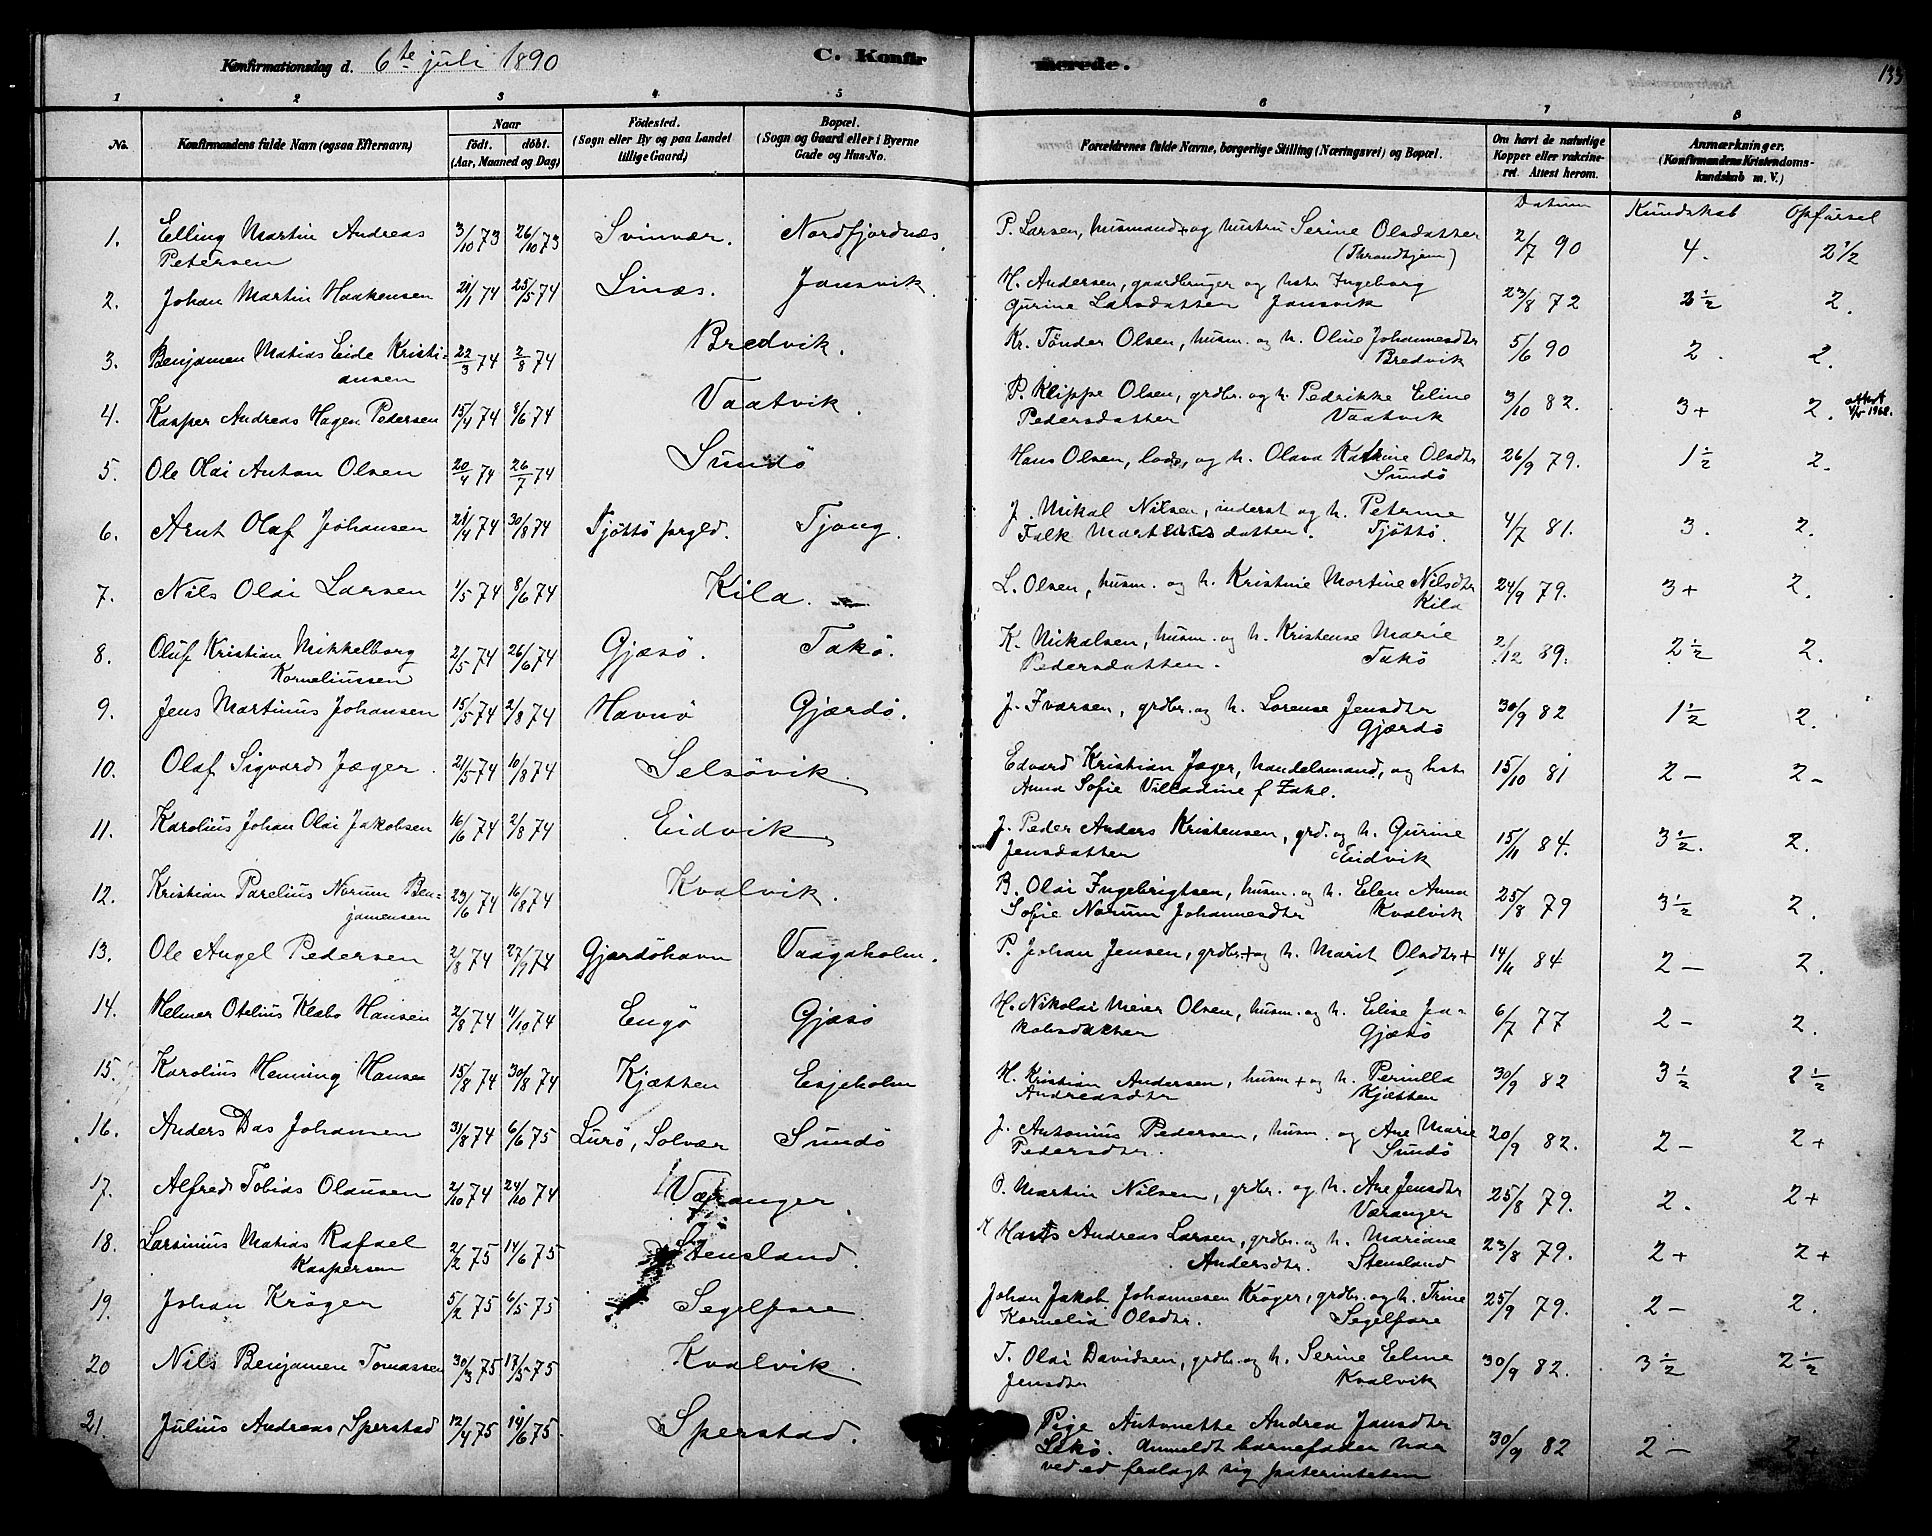 Konfirmationsdag d. 6te juli 1890 C. Konfirmerede. 133
1 2 3 4 5 6 7 8
No. Konfirmandens fulde Navn (ogsaa Efternavn) Naar født. døbt. (Aar, Maaned og Dag) Fødested. (Sogn eller By og paa Landet tillige Gaard) Bopæl. (Sogn og Gaard eller i Byerne Gade og Hus-No. Forældrenes fulde Navne, borgerlige Stilling (Næringsvei) og Bopæl. Om havt de naturlige Kopper eller vakcineret. Attest herom. Anmærkninger. (Konfirmandens Kristendomskundskab m. V.)
Datum Kundskab Opførsel
1. Elling Martin Andreas 3/10 73 26/10 73 Svinvær. Nordfjordnæs. P. Larsen, husmand + og hustru Serine Olsdatter 2/7 90 4. 2 1/2
Petersen (Throndhjem)
2. Johan Martin Haakensen 21/1 74 25/5 74 Sinæs. Jansvik. H. Andersen, gaardbruger og hstr Ingeborg 23/8 72 2 1/2 2.
Gurine Larsdatter Jansvik
3. Benjamen Matias Eide Kristi- 22/3 74 2/8 74 Bredvik. Kr. Tönder Olsen, husm. og h. Oline Johannesdtr 5/6 90 2. 2.
ansen Bredvik
4. Kasper Andreas Hagen Pedersen 15/4 74 8/6 74 Vaatvik. P. Klippe Olsen, grdbr. og h. Pedrikke Eline 3/10 82. 3+ 2. attest 1968.
Pedersdatter Vaatvik
5. Ole Olai Anton Olsen 20/4 74 26/7 74 Sundö Hans Olsen, lods, og h. Olava Katrine Olsdtr 26/9 79. 1 1/2 2.
Sundö
6. Arnt Olaf Johansen 21/4 74 30/8 74 Tjöttö prgld. Tjong. J. Mikal Nilsen, inderst og h. Petrine 4/7 81. 3. 2.
Falk Martinusdatter. Tjöttö.
7. Nils Olai Larsen 1/5 74 8/6 74 Kila. L. Olsen, husm. og h. Kristine Martine Nilsdtr 24/9 79. 3+ 2.
Kila
8. Oluf Kristian Mikkelborg 2/5 74 26/6 74 Gjæsö. Takö. K. Mikalsen, husm. og h. Kristense Marie 2/12 89. 2 1/2 2.
Korneliussen Pedersdatter. Takö
9. Jens Martinus Johansen 15/5 74 2/8 74 Havnö Gjærdö. J. Ivarsen, grdbr. og h. Lorense Jensdtr 30/9 82 1 1/2 2.
Gjærdö
10. Olaf Sigvard Jæger. 21/5 74 10/8 74 Selsövik. Edvard Kristian Jæger, handelsmand, og hstr 15/10 81 2 - 2 -
Anna Sofie Villadine f. Zahl.
11. Karolius Johan Olai Jakobsen 16/6 74 2/8 74 Eidvik. J. Peder Anders Kristensen, grd. og h. Gurine 15/11 84. 3 1/2. 2.
Jensdatter Eidvik
12. Kristian Parelius Norum Ben- 23/6 74 16/8 74 Kvalvik. B. Olai Ingebrigtsen, husm. og h. Elen Anna 25/8 79 3 1/2 2.
jamensen Sofie Norum Johannesdtr Kvalvik
13. Ole Angel Pedersen 2/8 74 27/9 74 Gjærdöhavn Vaagaholm. P. Johan Jensen, grdbr. + og h. Marit Olsdtr + 14/11 84 2 - 2.
14. Helmer Otelius Klæbo Hansen 2/8 74 4/10 74 Engö Gjæsö H. Nikolai Meier Olsen, husm. og h. Elise Ja- 6/7 77 2 - 2.
kobsdatter Gjæsö
15. Karolius Henning Hansen 15/8 74 30/8 74 Kjætten Esjeholm H. Kristian Andersen, husm + og h. Pernilla 30/9 82 3 1/2 2 1/2
Andreasdtr Kjætten
16. Anders Das Johansen 31/8 74 6/6 75 Lurö, Solvær Sundö J. Antonius Pedersen, husm. og Ane Marie 20/9 82. 2 - 2+
Pedersdtr. Sundö
17. Alfred Tobias Olausen 2/10 74 24/10 74 Væranger. O. Martin Nilsen, grdbr. og h. Ane Jensdtr 25/8 79. 2. 2+
Væranger
18. Larsinius Matias Rafael 2/2 75 14/6 75 Stensland. K Hans Andreas Larsen, grdbr. og h. Mariane 23/8 79. 2+ 2+
Kaspersen Andersdtr. Stensland
19. Johan Kröger 5/2 75 6/5 75 Segelfore Johan Jakob Johannesen Kröger, grdbr. og h. Trine 25/9 79. 2 - 2.
Kornelia Olsdtr. Segelfore
20 Nils Benjamen Tomassen 30/3 75 17/5 75 Kvalvik. T. Olai Davidsen, grdbr. og h. Serine Eline 30/9 82. 3 1/2 2 1/2
Jensdtr Kvalvik
21. Julius Andreas Sperstad 12/4 75 14/6 75. Sperstad. Pige Antonette Andrea Jansdtr 30/9 82 2 - 2+
Selsö. Anmeldt barnefader har
ved ed fralagt sig paterniteten